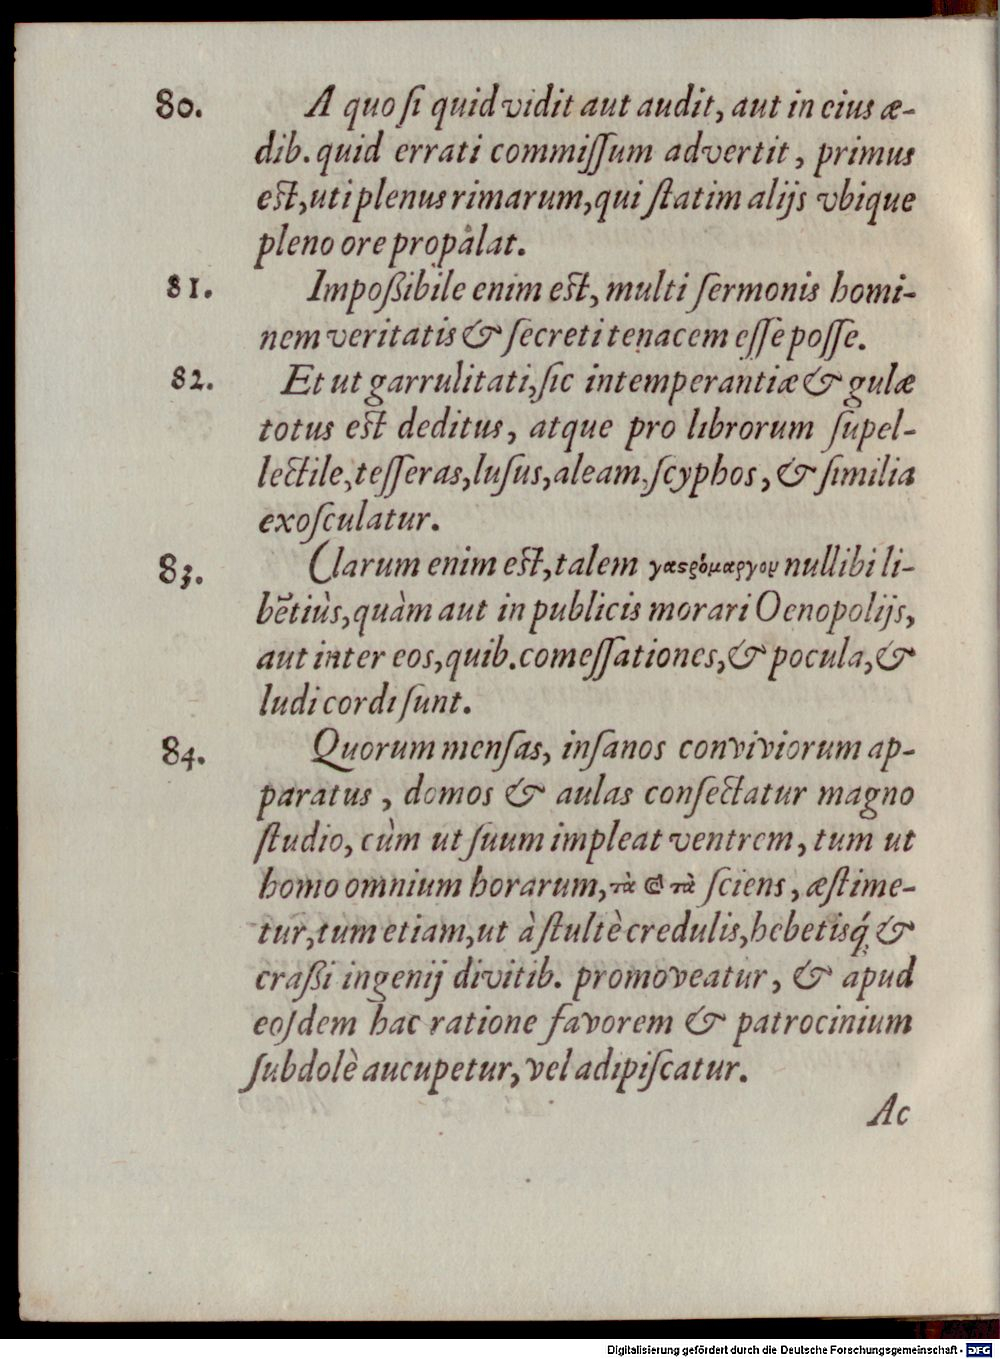 80. A quo ſi quid vidit aut audit, aut in eius æ-
dib. quid errati commiſſum advertit, primus
est, uti plenus rimarum, qui ſtatim alijs vbique
pleno ore propalat.
81. Impoßibile enim est, multi ſermonis homi-
nem veritatis & ſecreti tenacem eſſe poſſe.
82. Et ut garrulitati, ſic intemperantiæ & gulæ
totus est deditus, atque pro librorum ſupel-
lectile, teſſeras, luſus, aleam, ſcyphos, & ſimilia
exoſculatur.
83. Clarum enim est, talem γαϛρόμαργον nullibi li-
bētiùs, quàm aut in publicis morari Oenopolijs,
aut inter eos, quib. comeſſationes, & pocula, &
ludi cordi ſunt.
84. Quorum menſas, inſanos conviviorum ap-
paratus, domos & aulas conſectatur magno
ſtudio, cùm ut ſuum impleat ventrem, tum ut
homo omnium horarum, τὰ τὰ ſciens, æſtime-
tur, tum etiam, ut à ſtultè credulis, hebetisq́ &
craßi ingenij divitib. promoveatur, & apud
eoſdem hac ratione favorem & patrocinium
ſubdolè aucupetur, vel adipiſcatur.
Ac
Digitalisierung gefördert durch die Deutsche Forschungsgemeinschaft - DFG